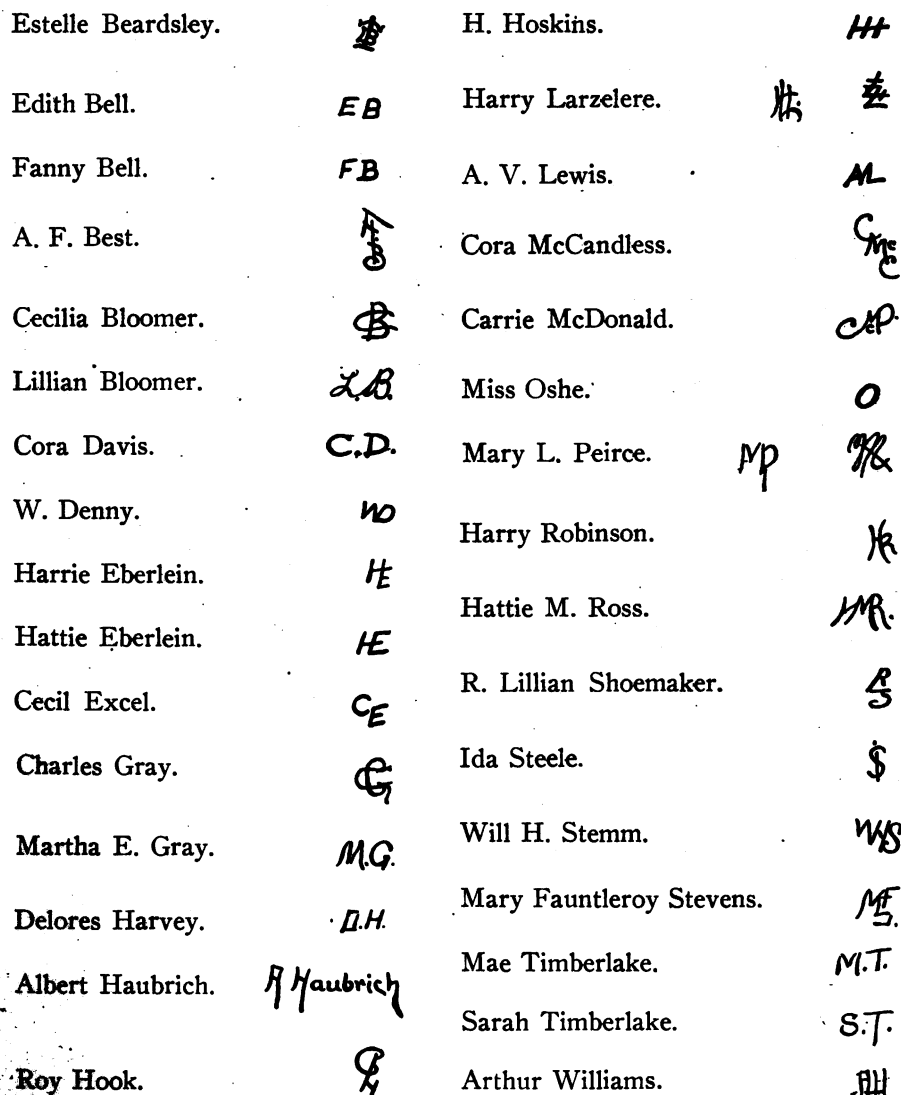 Estelle Beardsley.
Edith Bell. EB
Fanny Bell. FB
A. F. Best.
Cecilia Bloomer. CB
Lillian Bloomer. L.B.
Cora Davis. C.D.
W. Denny. WD
Harrie Eberlein. HE
Hattie Eberlein. HE
Cecil Excel. CE
Charles Gray. CG
Martha E. Gray. M.G.
Delores Harvey. D.H.
Albert Haubrich. A Haubrich
Roy Hook.
H. Hoskins. HH
Harry Larzelere.
A. V. Lewis. AL
Cora McCandless. CMcC
Carrie McDonald. CMcD.
Miss Oshe. O
Mary L. Peirce. MP
Harry Robinson. HR
Hattie M. Ross. HMR.
R. Lillian Shoemaker. RS
Ida Steele.
Will H. Stemm. WHS
Mary Fauntleroy Stevens. MFS.
Mae Timberlake. M.T.
Sarah Timberlake. S.T.
Arthur Williams.